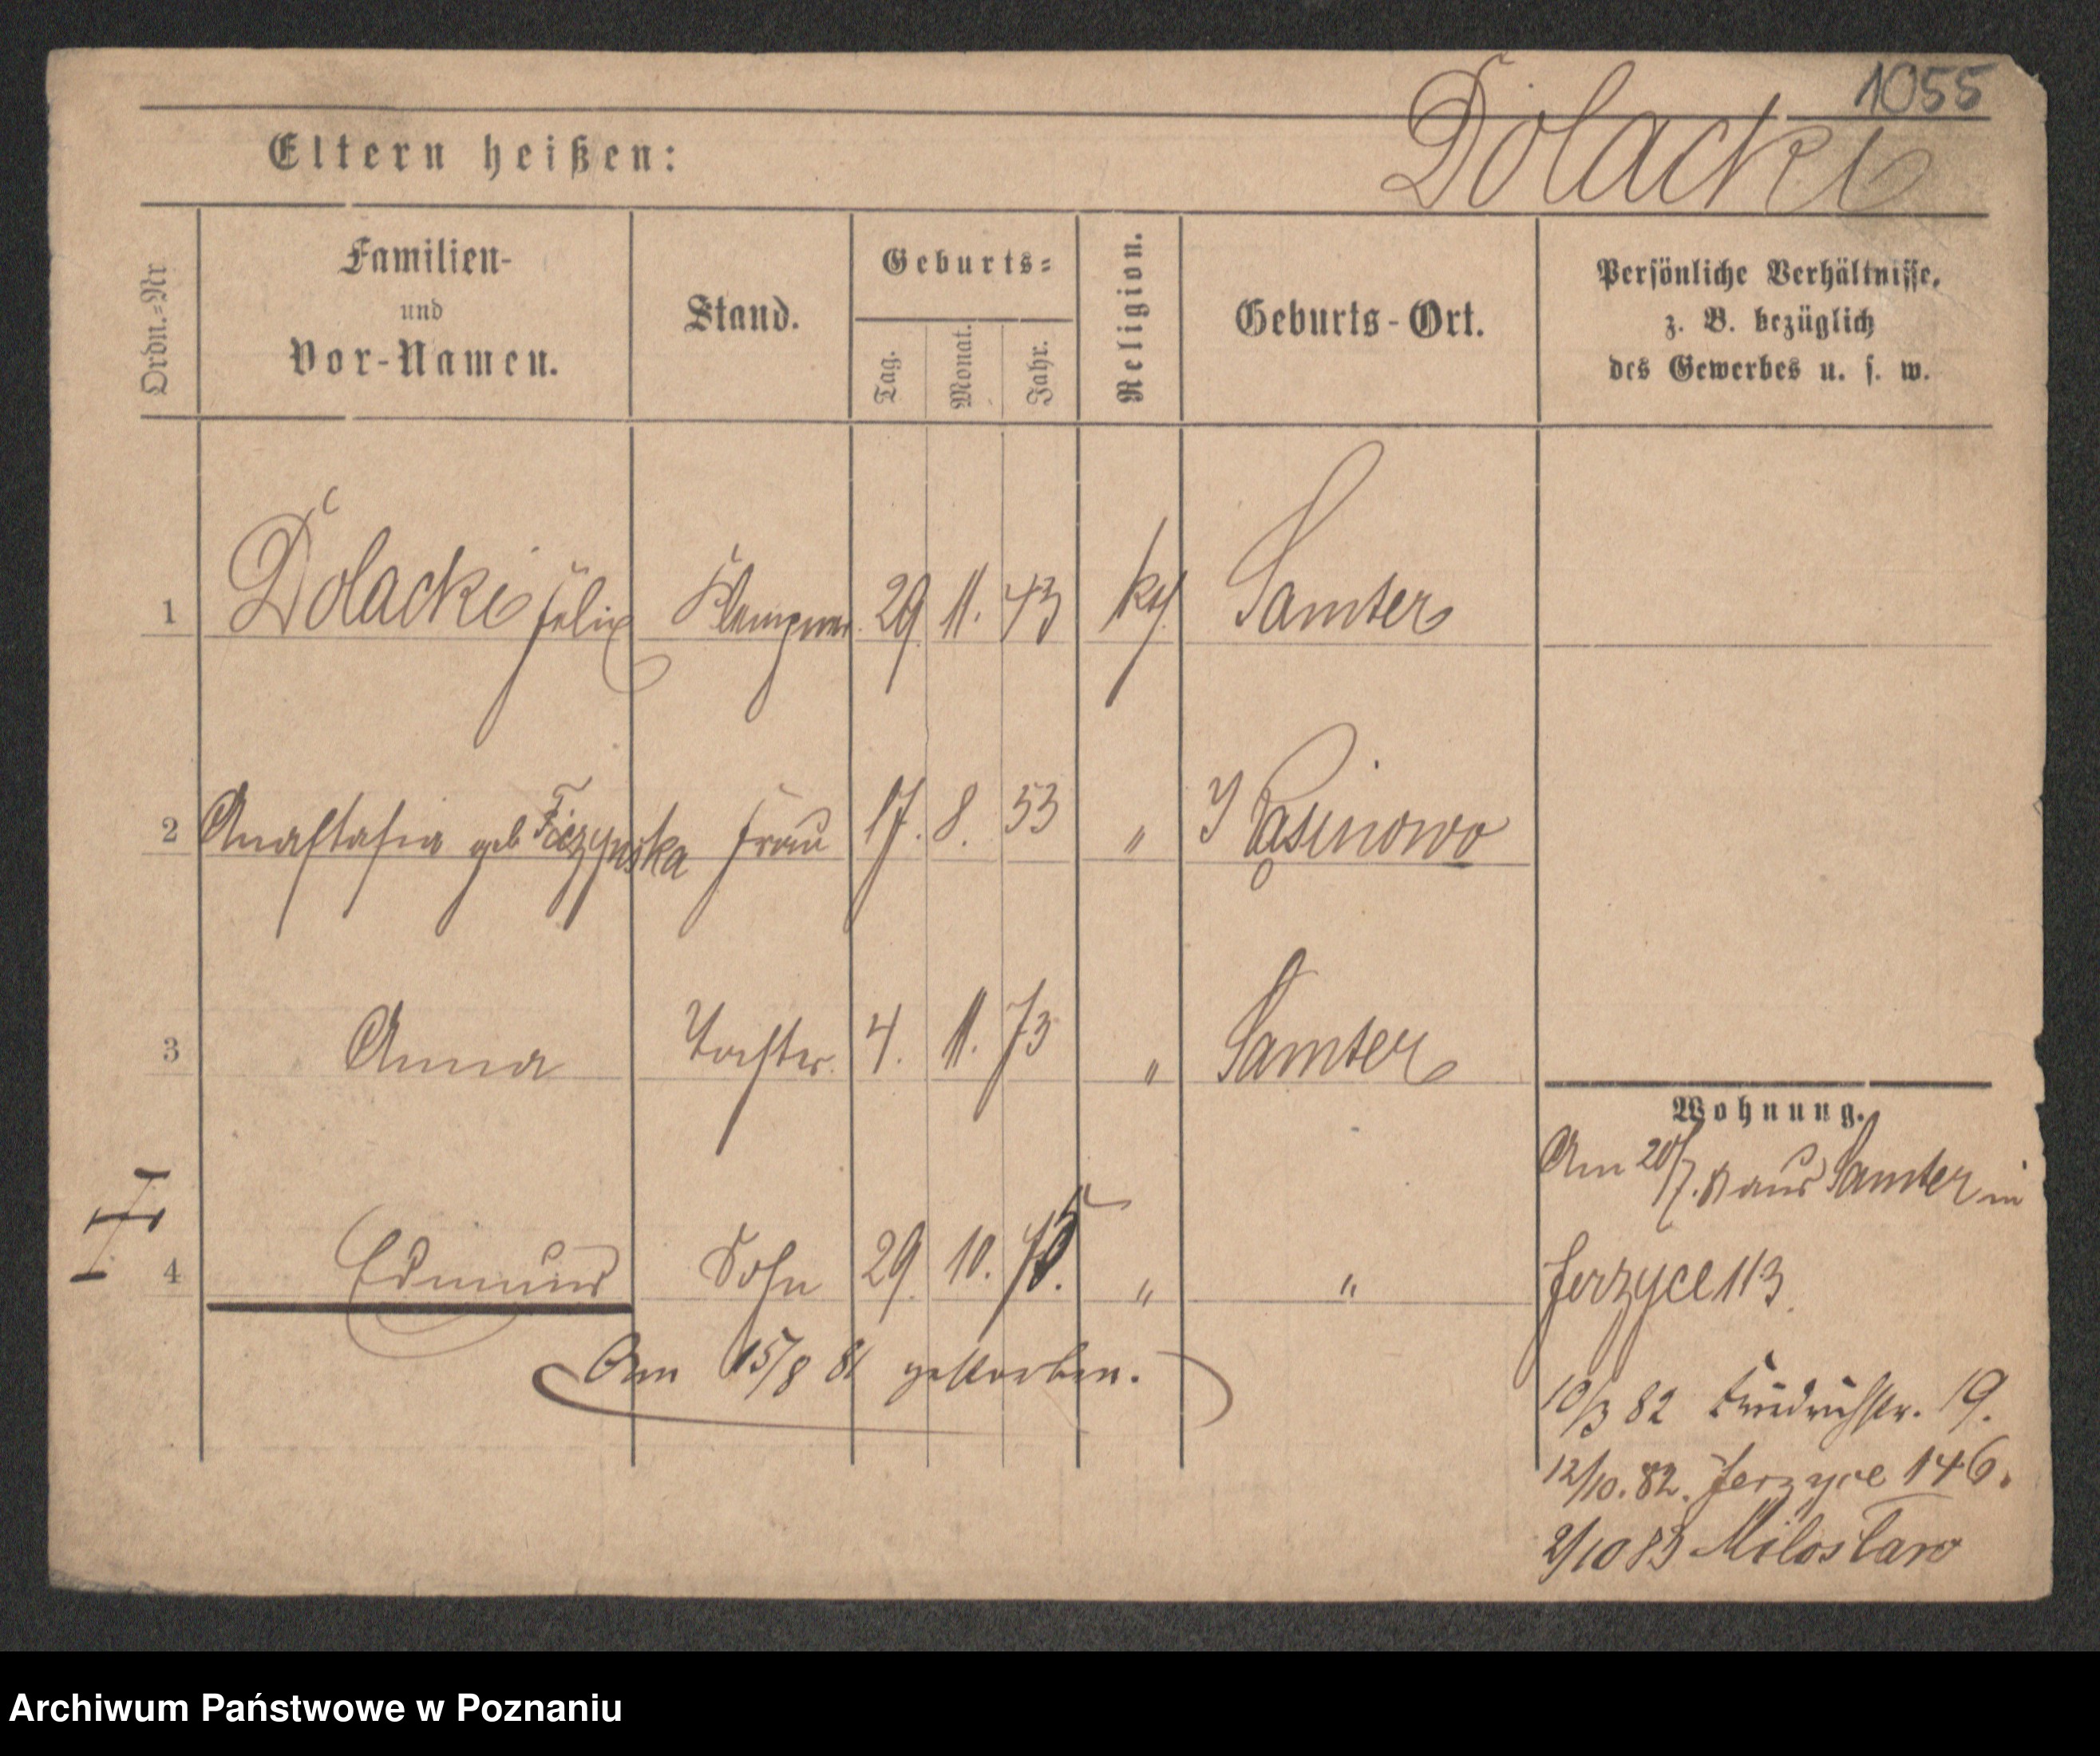 1055
Dolacki
Eltern heißen:
Ordn.=Nr
Familien-
und
Vor-Namen.
Stand.
Geburts=
Tag.
Monat.
Jahr.
Religion.
Geburts-Ort.
Persönliche Verhältnisse,
z. B. bezüglich
des Gewerbes u. s. w.
1 Dolacki Felix Klempner. 29 11. 43 Samter
2 Anastasia geb Frau 17. 8. 53 "
3 Anna Tochter. 4. 11. 73 " Samter
4 Edmund Sohn 29. 10. 75. " "
Am 15/8 81 gestorben.
Wohnung.
Am 20/7. 81 aus Samter in
Jerzyce 113.
10/3 82 Friedrichstr. 19.
12/10. 82. Jerzyce 146.
2/10 83 Miloslaw
Archiwum Państwowe w Poznaniu